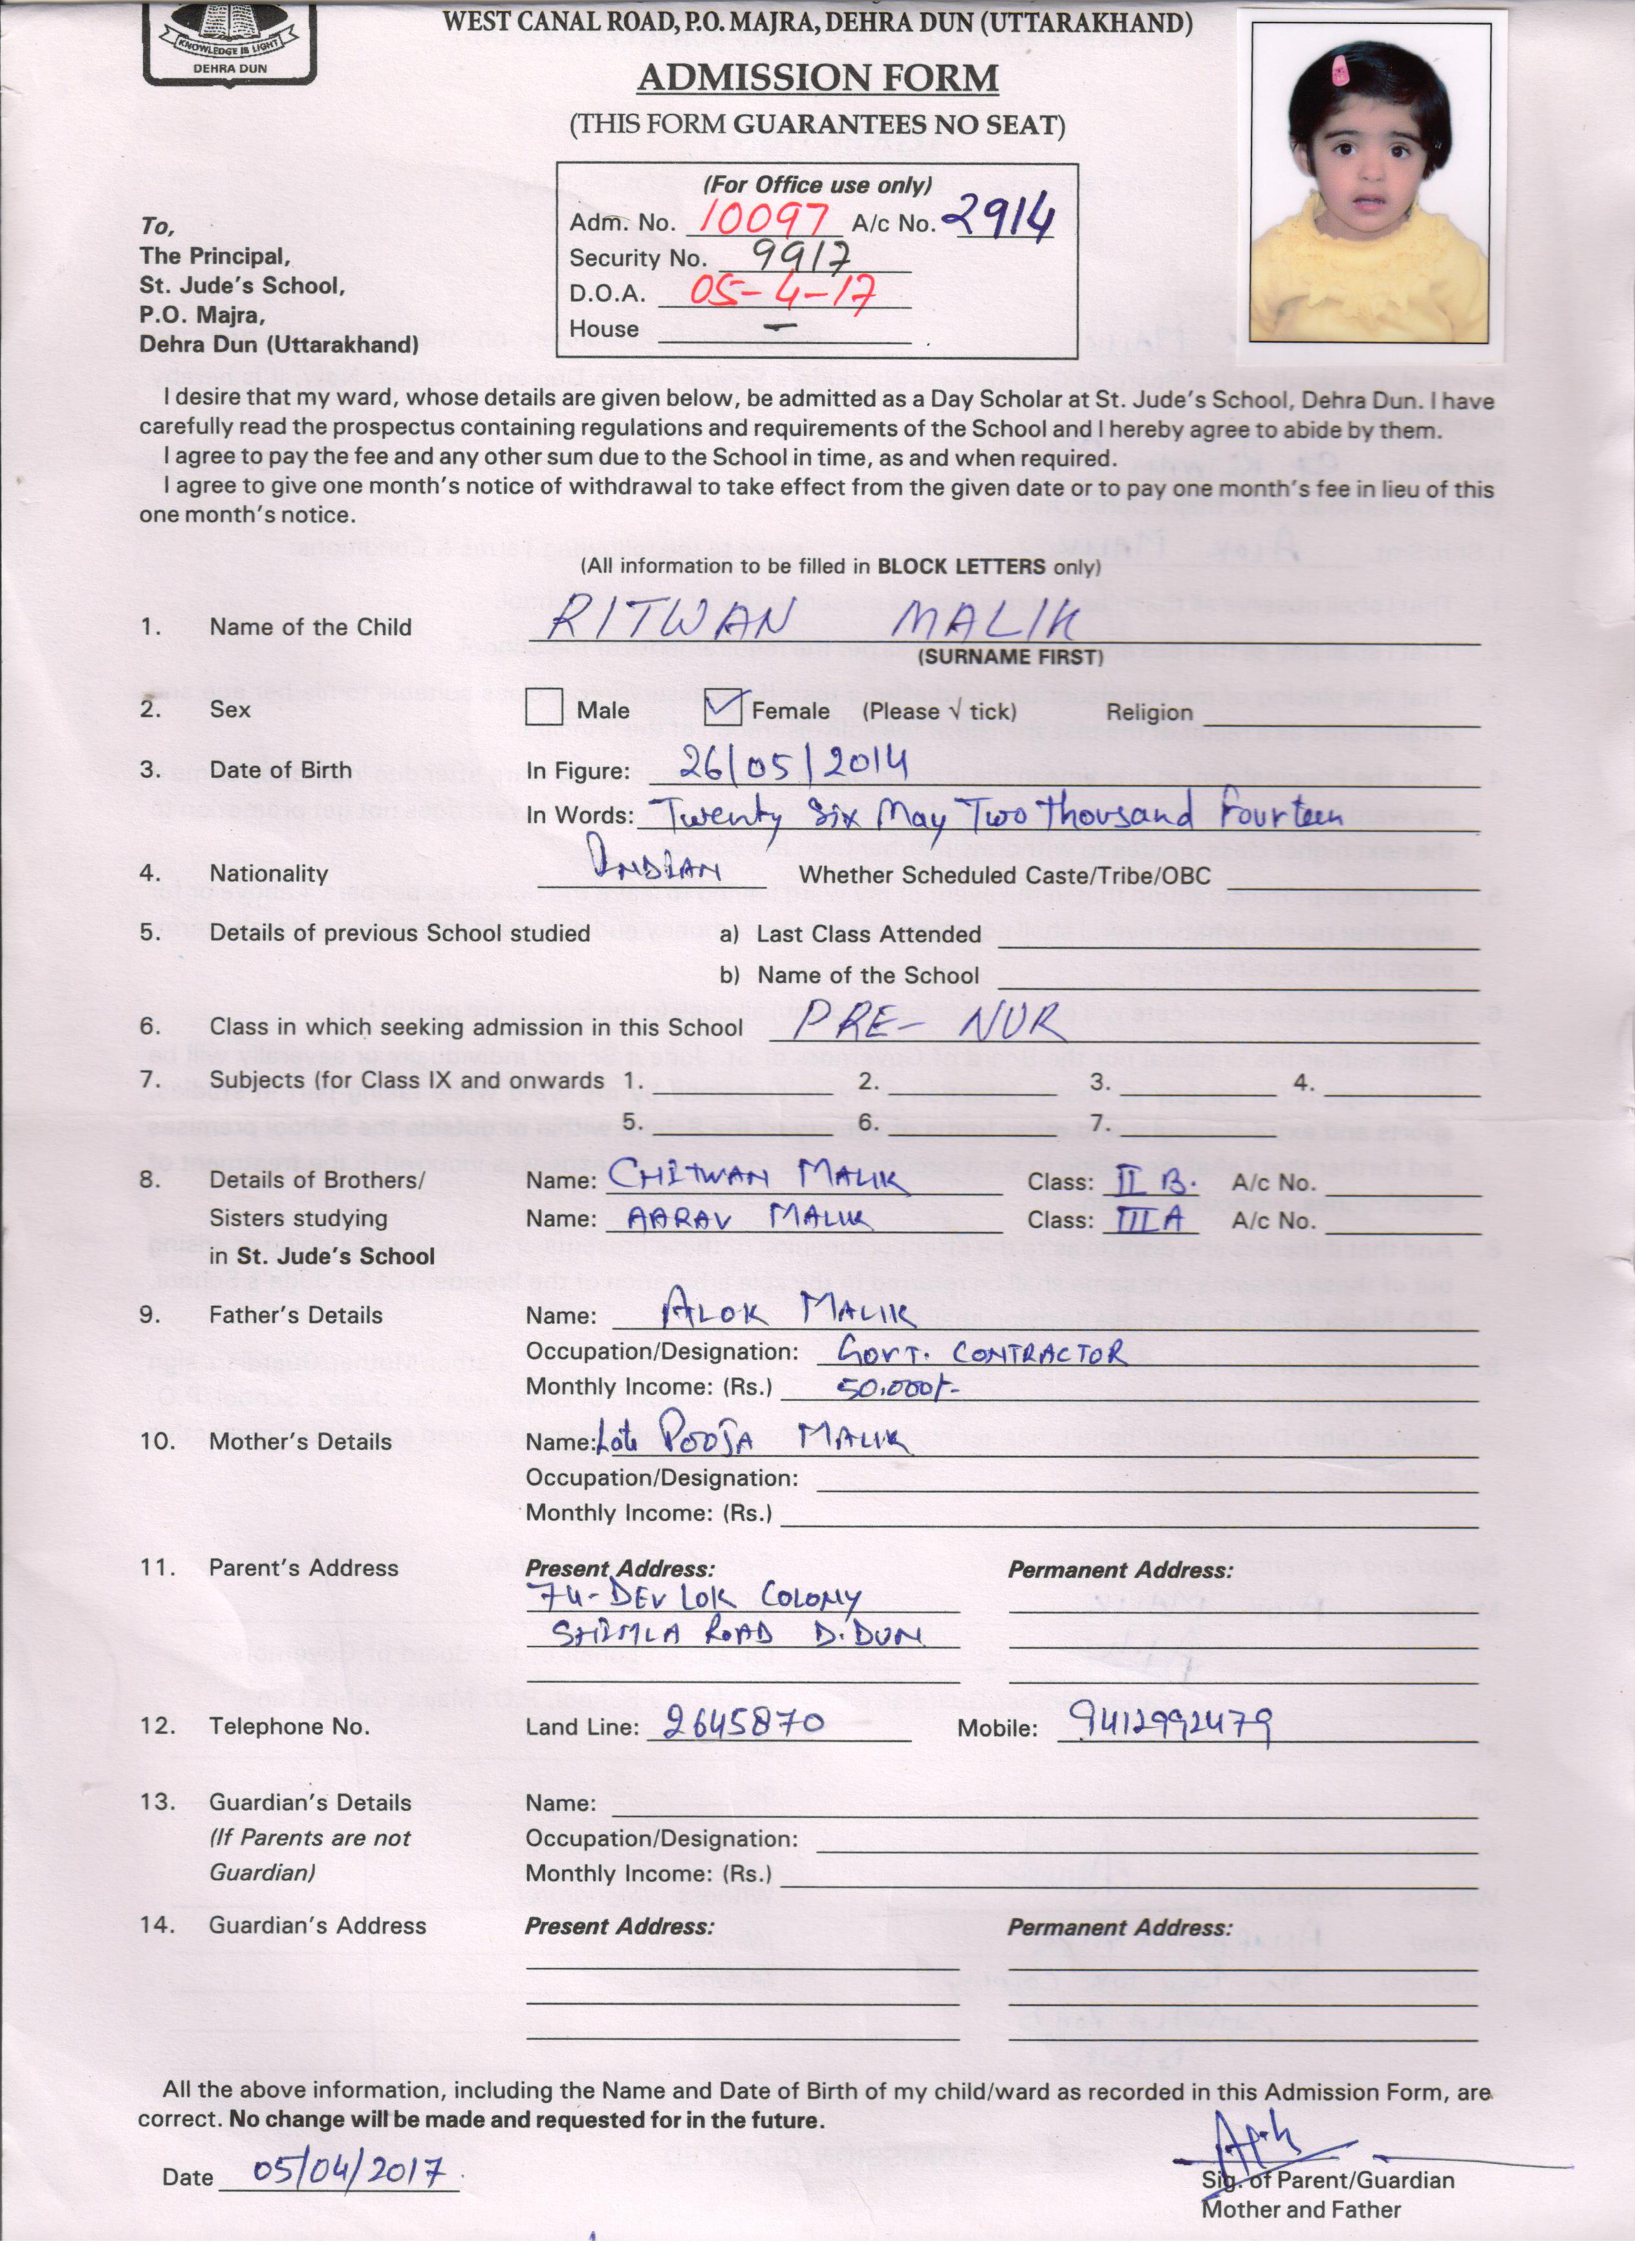 KNOWLEDGE IS LIGHT
DEHRA DUN
WEST CANAL ROAD, P.O. MAJRA, DEHRA DUN (UTTARAKHAND)
ADMISSION FORM
(THIS FORM GUARANTEES NO SEAT)
(For Office use only)
Adm. No. 10097 A/c No. 2914
Security No. 9917
D.O.A. 05-4-17
House -
To,
The Principal,
St. Jude's School,
P.O. Majra,
Dehra Dun (Uttarakhand)
I desire that my ward, whose details are given below, be admitted as a Day Scholar at St. Jude's School, Dehra Dun. I have
carefully read the prospectus containing regulations and requirements of the School and I hereby agree to abide by them.
I agree to pay the fee and any other sum due to the School in time, as and when required.
I agree to give one month's notice of withdrawal to take effect from the given date or to pay one month's fee in lieu of this
one month's notice.
(All information to be filled in BLOCK LETTERS only)
1. Name of the Child RITWAN MALIK
(SURNAME FIRST)
2. Sex Male Female (Please √ tick) Religion
3. Date of Birth In Figure: 26/05/2014
In Words: Twenty Six May Two Thousand Fourteen
4. Nationality INDIAN Whether Scheduled Caste/Tribe/OBC
5. Details of previous School studied a) Last Class Attended
b) Name of the School
6. Class in which seeking admission in this School PRE- NUR
7. Subjects (for Class IX and onwards 1. 2. 3. 4.
5. 6. 7.
8. Details of Brothers/ Name: CHITWAN MALIK Class: II B. A/c No.
Sisters studying Name: AARAV MALIK Class: III A A/c No.
in St. Jude's School
9. Father's Details Name: ALOK MALIK
Occupation/Designation: GOVT. CONTRACTOR
Monthly Income: (Rs.) 50,000/-
10. Mother's Details Name: Late POOJA MALIK
Occupation/Designation:
Monthly Income: (Rs.)
11. Parent's Address Present Address: Permanent Address:
74-DEV LOK COLONY
SHIMLA ROAD D.DUN
12. Telephone No. Land Line: 2645870 Mobile: 9412992479
13. Guardian's Details Name:
(If Parents are not Occupation/Designation:
Guardian) Monthly Income: (Rs.)
14. Guardian's Address Present Address: Permanent Address:
All the above information, including the Name and Date of Birth of my child/ward as recorded in this Admission Form, are
correct. No change will be made and requested for in the future.
Date 05/04/2017
Sig. of Parent/Guardian
Mother and Father